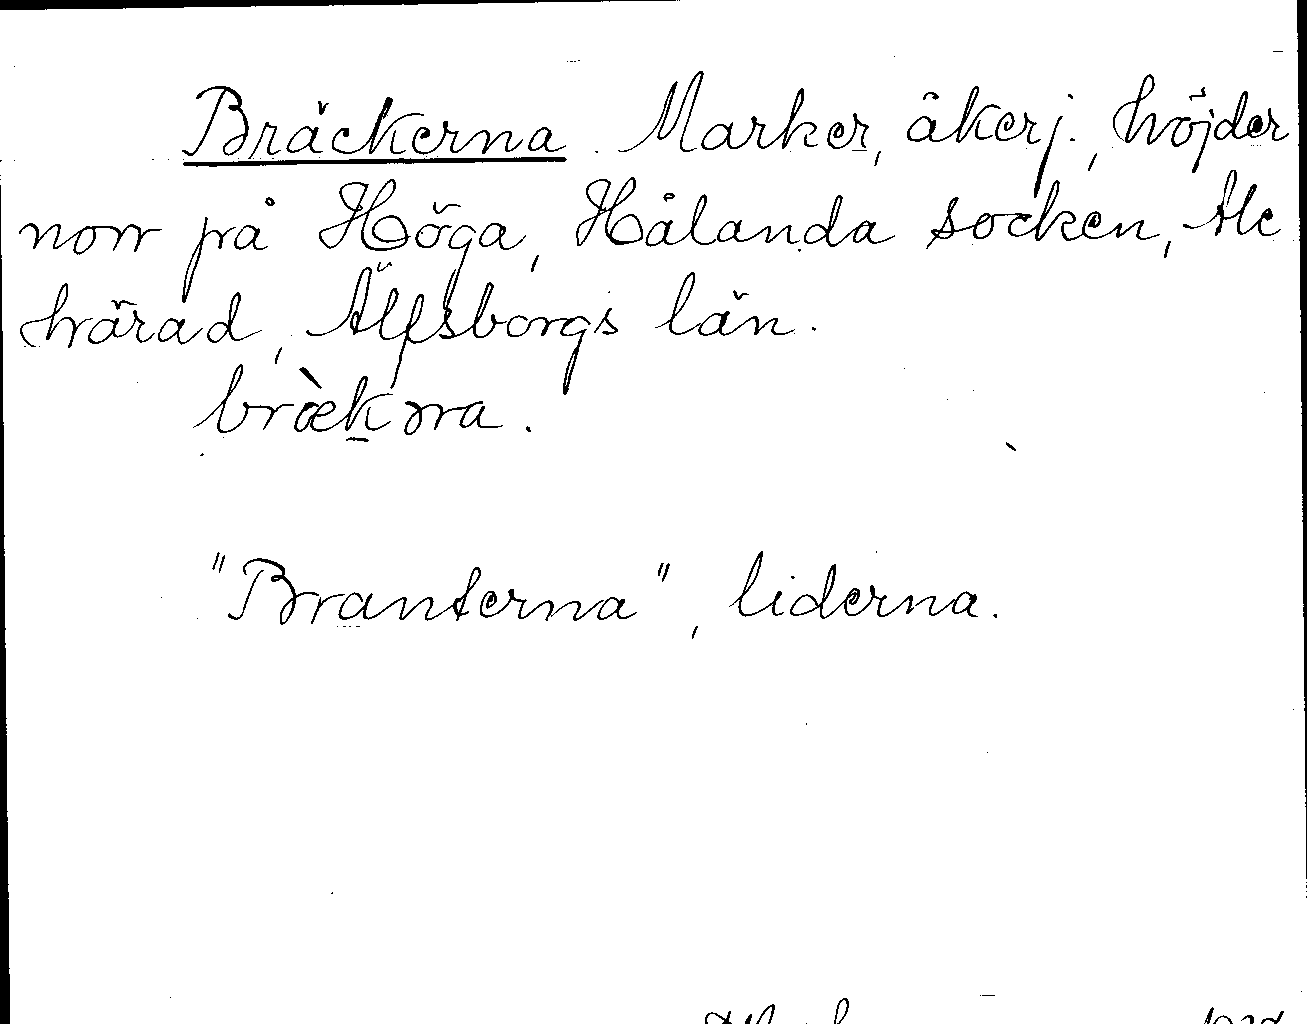 Bräckerna. Marker, åkerj., höjder
norr på Höga, Hålanda socken, Ale
härad, Älfsborgs län.
bræ̀kɔrra.
"Branterna", liderna.